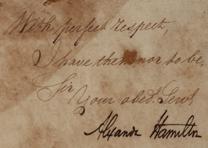 With perfect respect,
I have the honor to be,
Sir
Your obed. Serv!
Alexander Hamilton